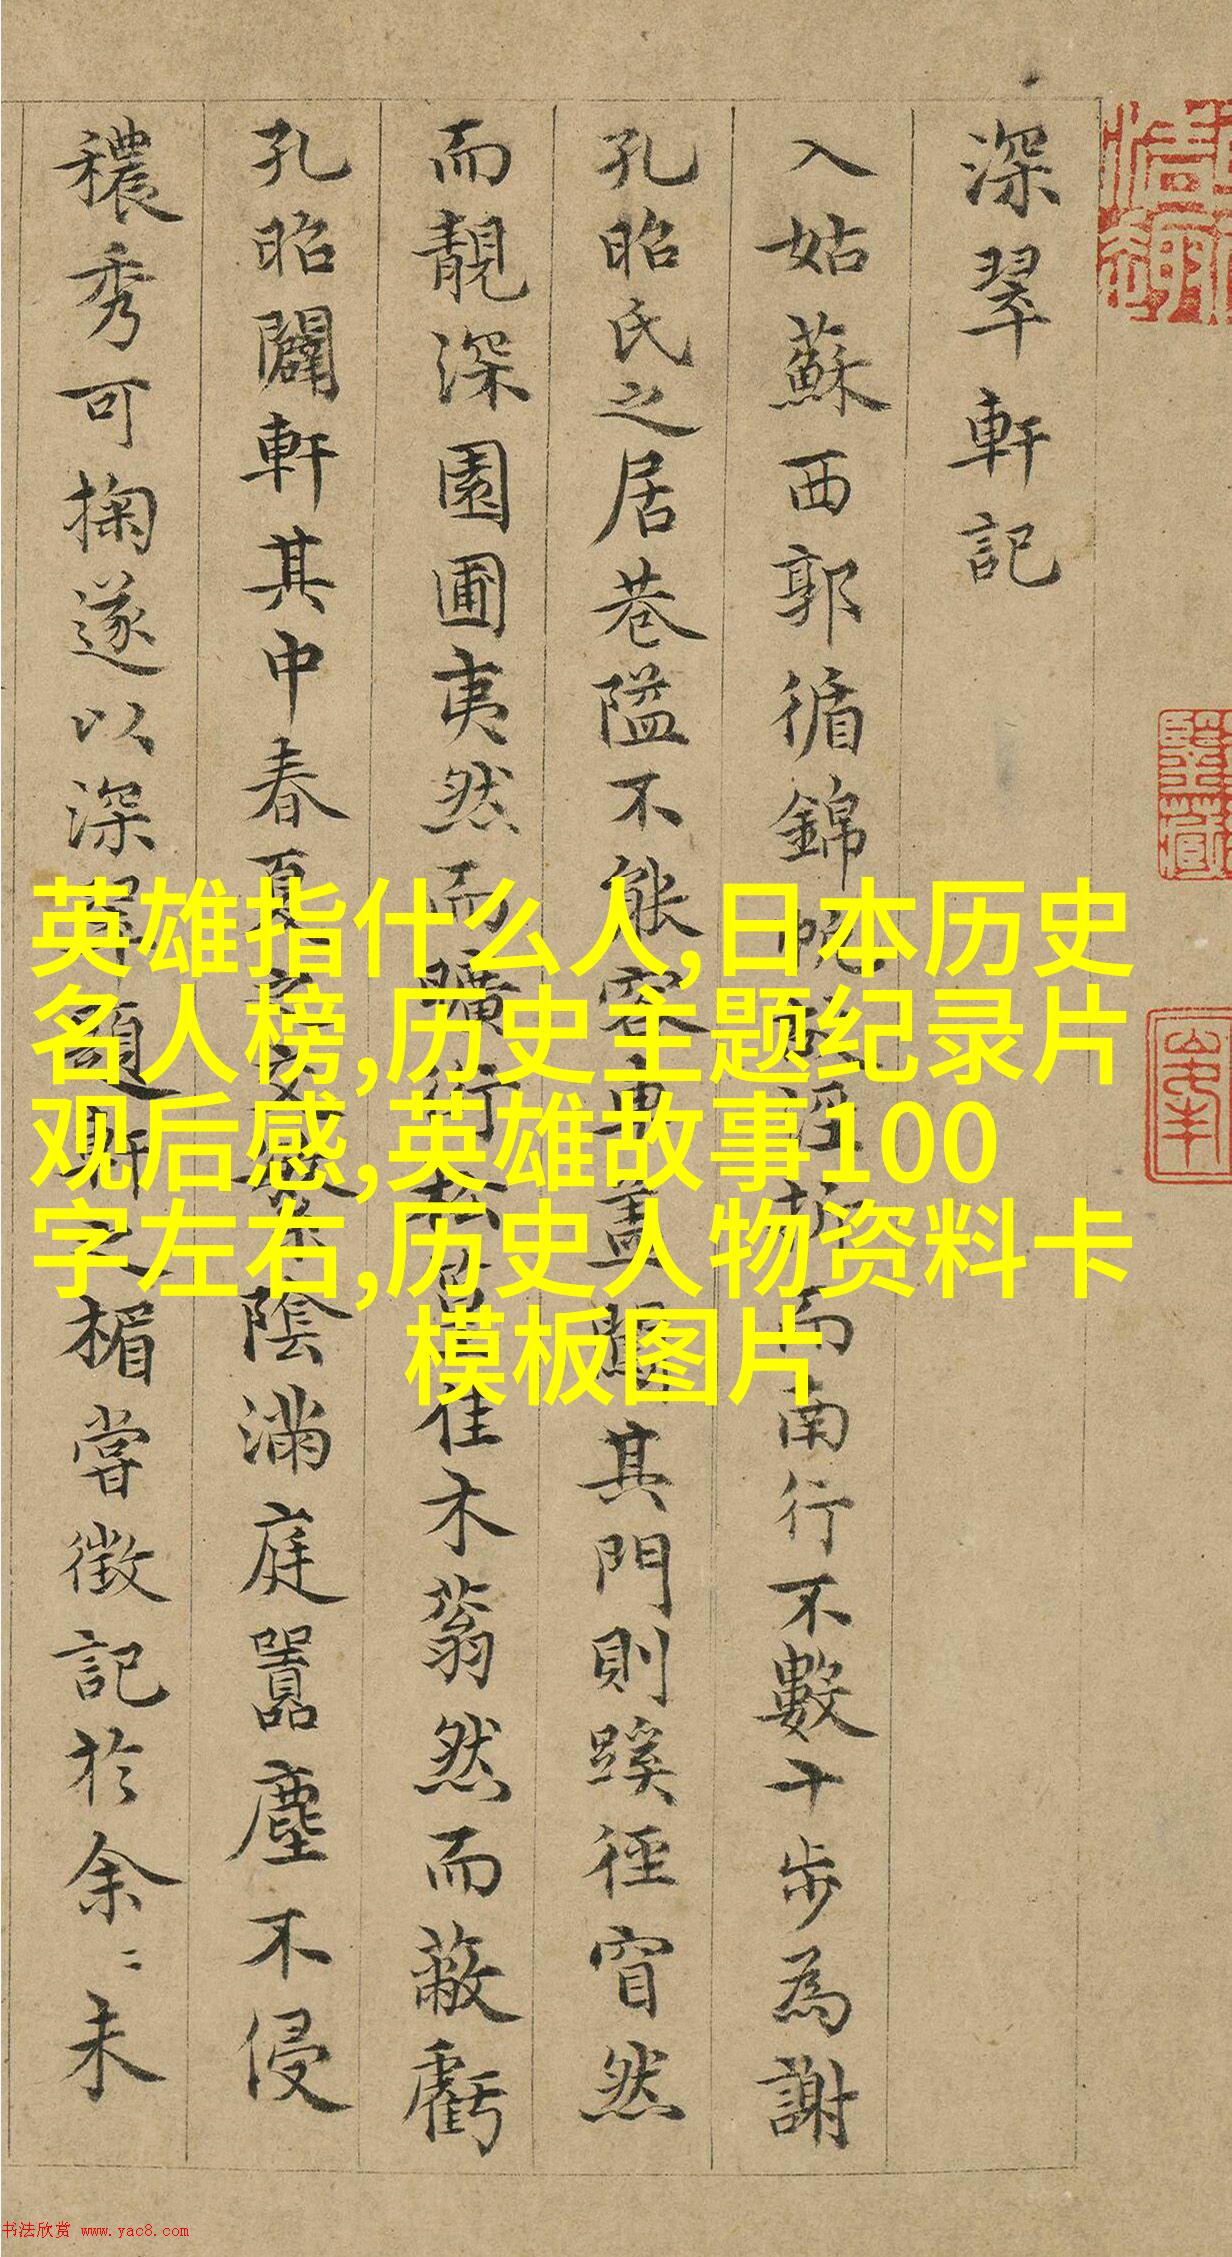 深翠軒記
入姑蘇西郭循錦帆涇折而南行不數十步為謝
孔昭氏之居巷隘不能容車蓋闢其門則蹊徑窅然
而靚深園圃夷然而曠衍松佳木蓊然而蔽虧
孔昭闢軒其中春夏之交繁陰滿庭囂塵不侵
穠秀可掬遂以深翠題軒之楣嘗徵記於余〻未
英雄指什么人,日本历史
名人榜,历史主题纪录片
观后感,英雄故事100
字左右,历史人物资料卡
模板图片
书法欣赏 www.yac8.com